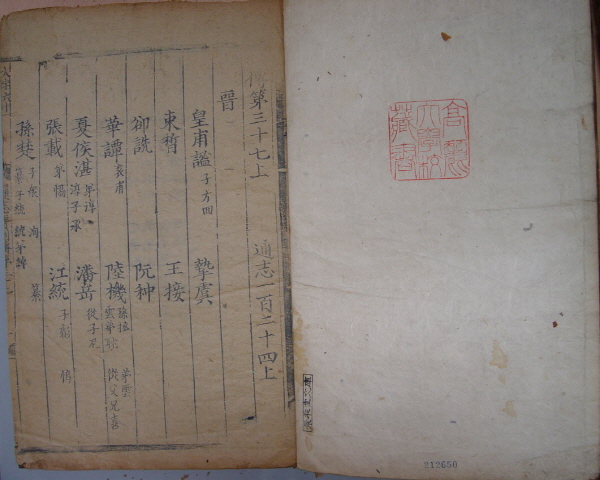 傳第三十七上 通志一百二十四上
晉
皇甫謐 子方回 摯虞
束晳 王接
郤詵 阮种
華譚 袁甫 陸機 孫拯 弟雲 雲弟耽 從父兄喜
夏侯湛 弟淳 淳子承 潘岳 從子尼
張載 弟協 江統 子虨 惇
孫楚 子衆 洵 纂 纂子統 統弟綽
高麗大學校藏書
212650